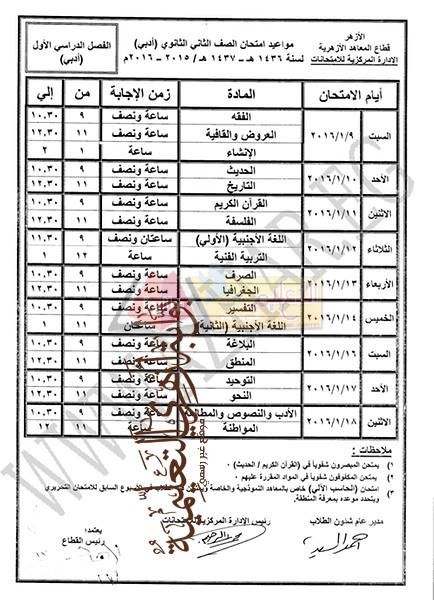 الأزهر
قطاع المعاهد الأزهرية
الإدارة المركزية للامتحانات
مواعيد امتحان الصف الثاني الثانوي (أدبي)
لسنة ١٤٣٦ هـ - ١٤٣٧ هـ / ٢٠١٥ - ٢٠١٦م
الفصل الدراسي الأول
(أدبي)
أيام الامتحان المادة زمن الإجابة من إلي
السبت ٢٠١٦/١/٩ الفقه ساعة ونصف ٩ ١٠.٣٠
العروض والقافية ساعة ونصف ١١ ١٢.٣٠
الإنشاء ساعة ١ ٢
الأحد ٢٠١٦/١/١٠ الحديث ساعة ونصف ٩ ١٠.٣٠
التاريخ ساعة ونصف ١١ ١٢.٣٠
الاثنين ٢٠١٦/١/١١ القرآن الكريم ساعة ونصف ٩ ١٠.٣٠
الفلسفة ساعة ونصف ١١ ١٢.٣٠
الثلاثاء ٢٠١٦/١/١٢ اللغة الأجنبية (الأولي) ساعتان ونصف ٩ ١١.٣٠
التربية الفنية ساعة ١٢ ١
الأربعاء ٢٠١٦/١/١٣ الصرف ساعة ونصف ٩ ١٠.٣٠
الجغرافيا ساعة ونصف ١١ ١٢.٣٠
الخميس ٢٠١٦/١/١٤ التفسير ساعة ونصف ٩ ١٠.٣٠
اللغة الأجنبية (الثانية) ساعتان ١١ ١
السبت ٢٠١٦/١/١٦ البلاغة ساعة ونصف ٩ ١٠.٣٠
المنطق ساعة ونصف ١١ ١٢.٣٠
الأحد ٢٠١٦/١/١٧ التوحيد ساعة ونصف ٩ ١٠.٣٠
النحو ساعة ونصف ١١ ١٢.٣٠
الاثنين ٢٠١٦/١/١٨ الأدب والنصوص والمطالعة ساعة ونصف ٩ ١٠.٣٠
المواطنة ساعة ١١ ١٢
ملاحظات :
١) يمتحن المبصرون شفوياً في (القرآن الكريم / الحديث)
٢) يمتحن المكفوفون شفوياً في المواد المقررة عليهم
٣) امتحان (الحاسب الآلي) خاص بالمعاهد النموذجية والخاصة الأسبوع السابق للامتحان التحريري
ويتحدد موعده بمعرفة المنطقة.
مدير عام شئون الطلاب
رئيس الإدارة المركزية للامتحانات
يعتمد،
رئيس القطاع
موقع غير رسمي